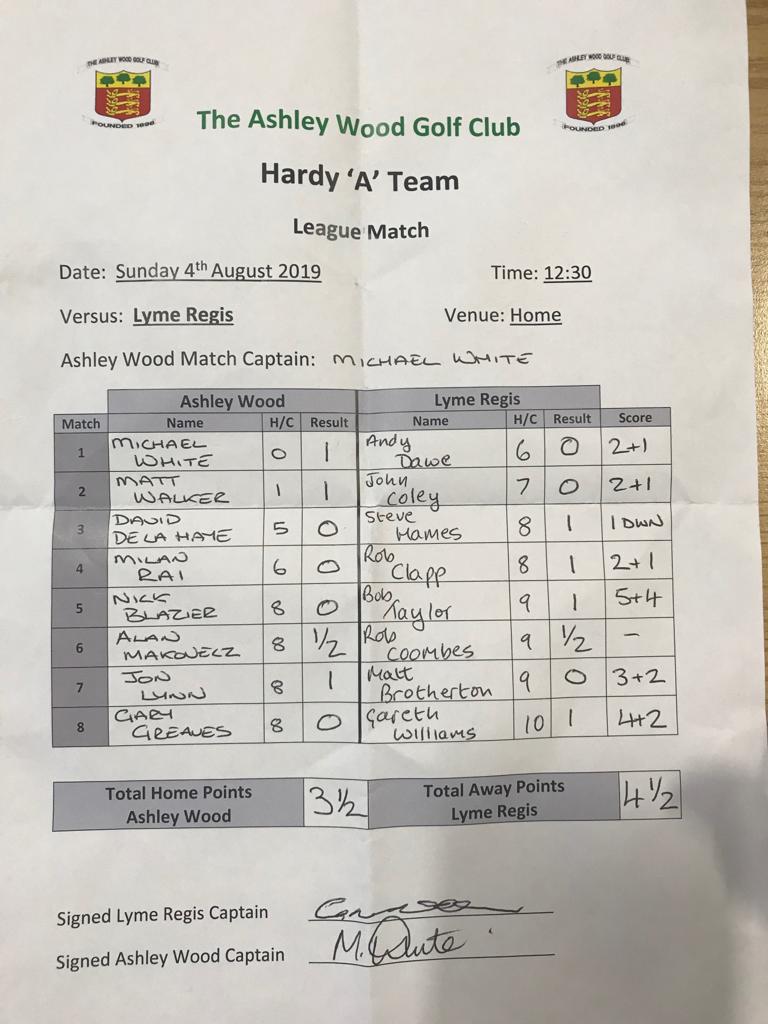 THE ASHLEY WOOD GOLF CLUB
FOUNDED 1896
THE ASHLEY WOOD GOLF CLUB
FOUNDED 1896
The Ashley Wood Golf Club
Hardy ‘A’ Team
League Match
Date: Sunday 4th August 2019 Time: 12:30
Versus: Lyme Regis Venue: Home
Ashley Wood Match Captain: MICHAEL WHITE
Ashley Wood Lyme Regis
Match Name H/C Result Name H/C Result Score
1 MICHAEL WHITE 0 1 Andy Dawe 6 0 2+1
2 MATT WALKER 1 1 John Coley 7 0 2+1
3 DAVID DE LA HAYE 5 0 Steve Hames 8 1 1 DWN
4 MILAN RAI 6 0 Rob Clapp 8 1 2+1
5 NICK BLAZIER 8 0 Bob Taylor 9 1 5+4
6 ALAN MAKOWECZ 8 1/2 Rob Coombes 9 1/2 –
7 JON LYNN 8 1 Matt Brotherton 9 0 3+2
8 GARY GREAVES 8 0 Gareth Williams 10 1 4+2
Total Home Points
Ashley Wood 3 1/2
Total Away Points
Lyme Regis 4 1/2
Signed Lyme Regis Captain
Signed Ashley Wood Captain M. White